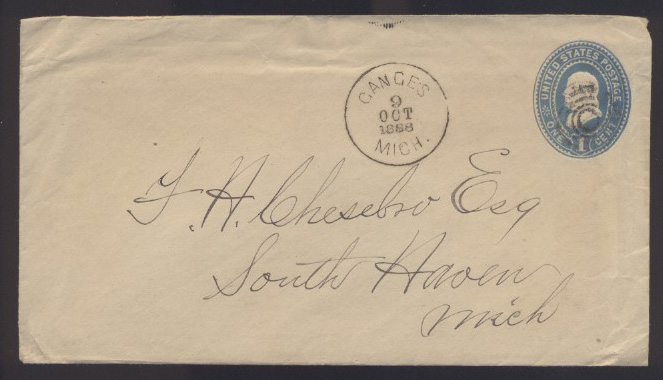 UNITED STATES POSTAGE
ONE 1 CENT
GANGES
9
OCT
1888
MICH.
F. H. Chesebro Esq
South Haven
Mich